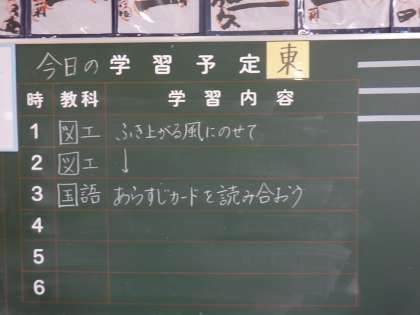 今日の学習予定 東
時 教科 学習内容
1 図工 ふき上がる風にのせて
2 図工 ↓
3 国語 あらすじカードを読み合おう
4
5
6